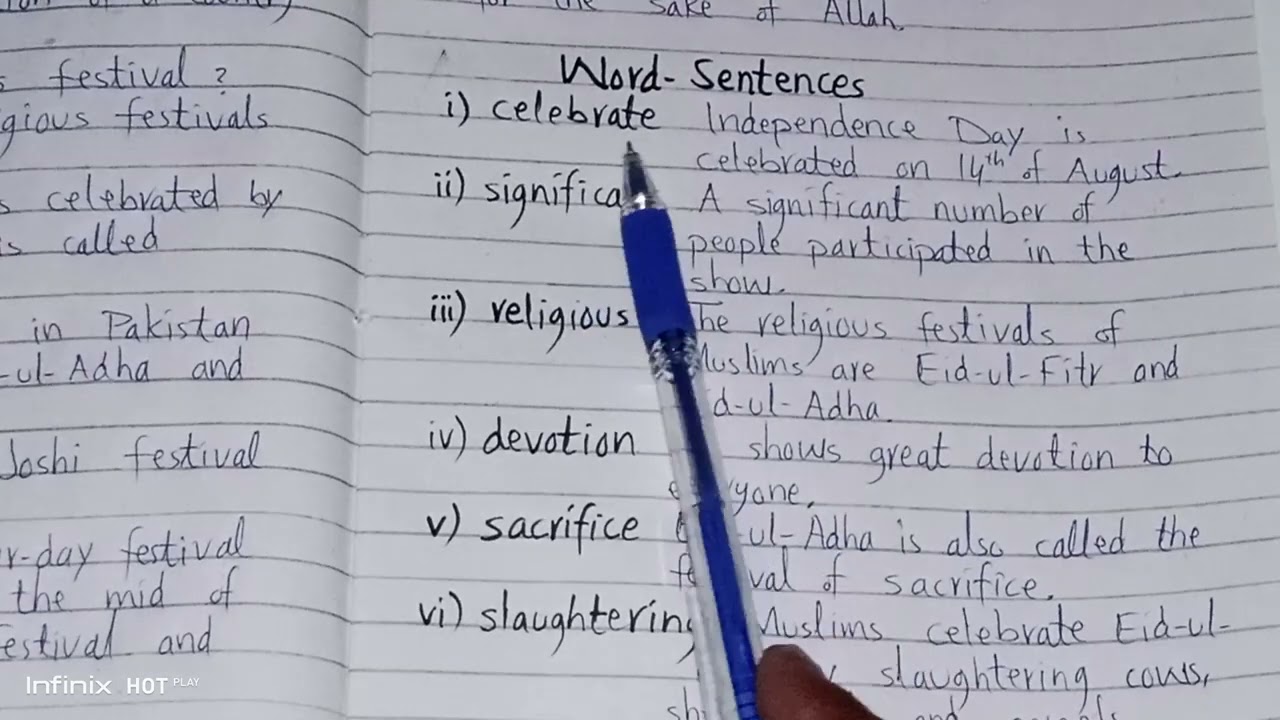 for the sake of Allah.
festival?
gious festivals
celebrated by
is called
in Pakistan
-ul-Adha and
Joshi festival
r-day festival
the mid of
estival and
Word-Sentences
i) celebrate Independence Day is
celebrated on 14th of August.
ii) significa A significant number of
people participated in the
show.
iii) religious The religious festivals of
Muslims are Eid-ul-Fitr and
id-ul-Adha.
iv) devotion shows great devotion to
yone.
v) sacrifice ul-Adha is also called the
val of sacrifice.
vi) slaughtering Muslims celebrate Eid-ul-
slaughtering cows,
and
Infinix HOT PLAY